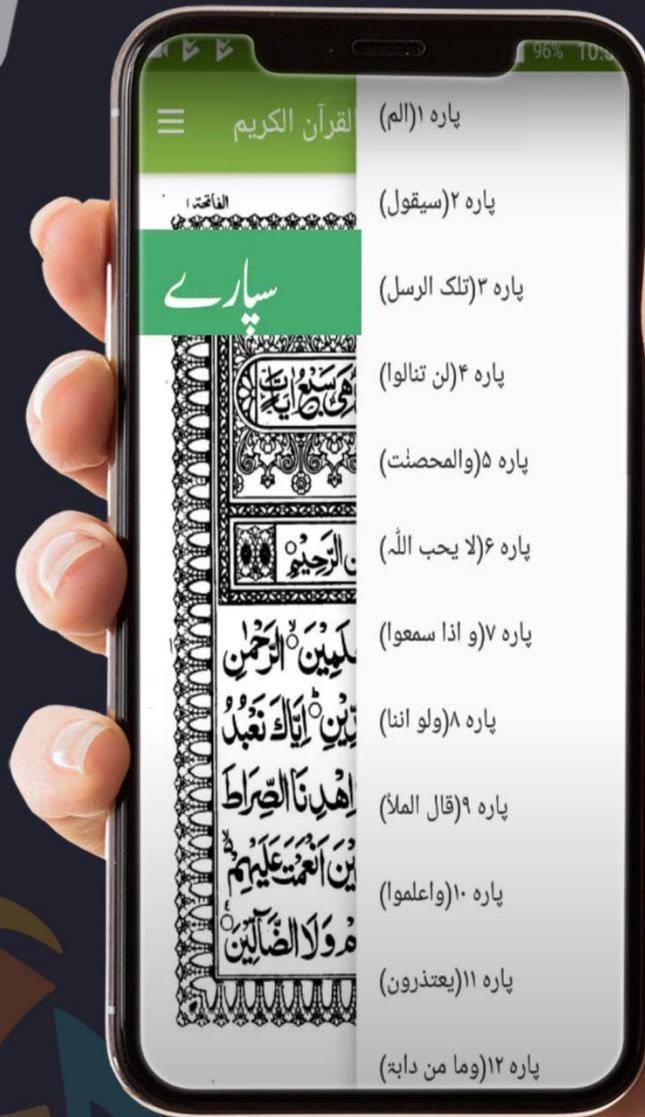 96% 10:
القرآن الكريم
الفاتحة ١
سپارے
وهی سبع ایات
الرحیم
علمین الرحمن
الدین ایاک نعبد
اهدنا الصراط
ین انعمت علیهم
هم ولا الضالین
پاره ۱(الم)
پاره ۲(سیقول)
پاره ۳(تلک الرسل)
پاره ۴(لن تنالوا)
پاره ۵(والمحصنٰت)
پاره ۶(لا یحب اللّٰہ)
پاره ۷(و اذا سمعوا)
پاره ۸(ولو اننا)
پاره ۹(قال الملأ)
پاره ۱۰(واعلموا)
پاره ۱۱(یعتذرون)
پاره ۱۲(وما من دابة)